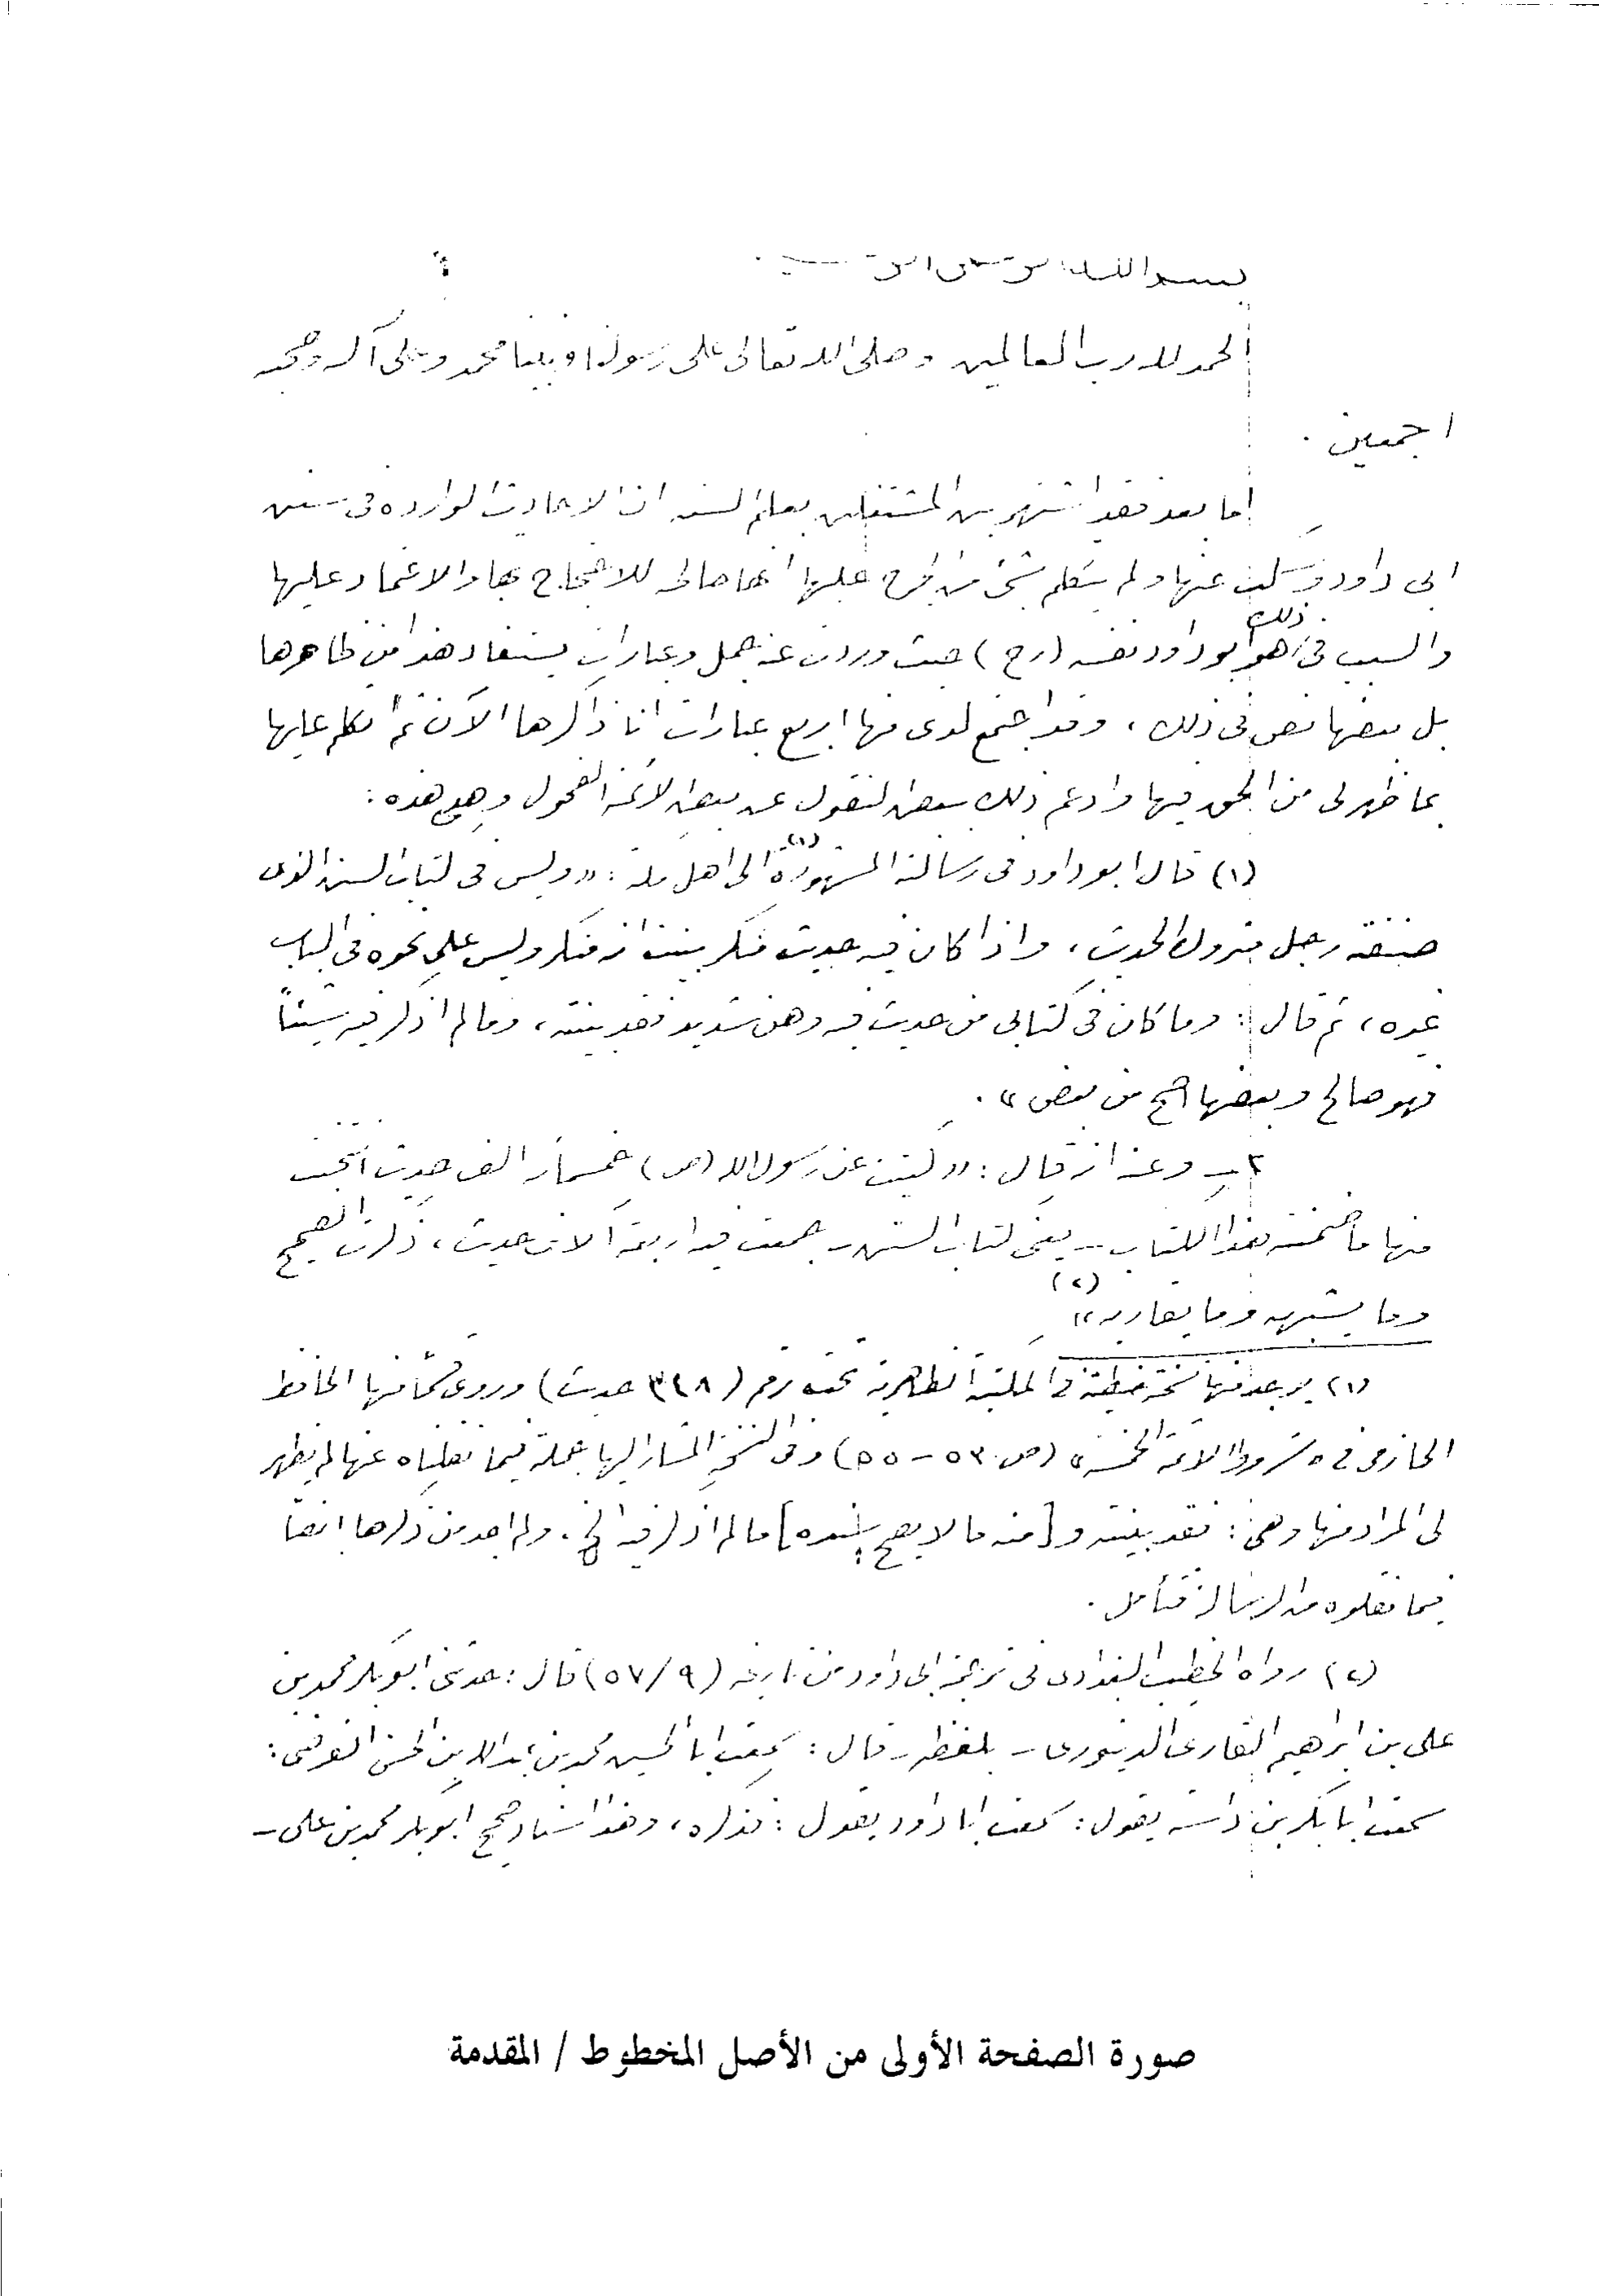 بسم الله الرحمن الرحيم
الحمد لله رب العالمين وصلى الله تعالى على رسولنا ونبينا محمد وعلى آله وصحبه
اجمعين .
اما بعد فقد اشتهر بين المشتغلين بعلم السنة ان الاحاديث الواردة في سنن
ابي داود وسكت عنها ولم يتكلم بشيء من الجرح عليها انها صالحة للاحتجاج بها والاعتماد عليها
والسبب في ذلك هو ابو داود نفسه (رح) حيث وردت عنه جمل وعبارات يستفاد هذا من ظاهرها
بل بعضها نص في ذلك ، وقد اجتمع لدي منها اربع عبارات انا ذاكرها الآن ثم اتكلم عليها
بما ظهر لي من الحق فيها وادعم ذلك ببعض النقول عن بعض الائمة الفحول وهي هذه :
(١) قال ابو داود في رسالته المشهورة (١) الى اهل مكة : «وليس في كتاب السنن الذي
صنفته رجل متروك الحديث ، واذا كان فيه حديث منكر بينت انه منكر وليس على نحوه في الباب
غيره ، ثم قال : وما كان في كتابي من حديث فيه وهن شديد فقد بينته ، وما لم اذكر فيه شيئاً
فهو صالح وبعضها اصح من بعض» .
٢ـ وعنه انه قال : «كتبت عن رسول الله (ص) خمسمائة الف حديث انتخبت
منها ما ضمنته هذا الكتاب -- يعني كتاب السنن - جمعت فيه اربعة آلاف حديث ، ذكرت الصحيح
وما يشبهه وما يقاربه» (٢)
(١) يوجد منها نسخة خطية في المكتبة الظاهرية تحت رقم (٣٤٨ حديث) وروى قسماً منها الحافظ
الحازمي في «شروط الائمة الخمسة» (ص ٥٣ - ٥٥) وفي النسخة المشار اليها جملة فيما نقلناه عنها لم يظهر
لي المراد منها وهي : فقد بينته و[منه ما لا يصح سنده] ما لم اذكر فيه الخ . ولم اجد من ذكرها ايضاً
فيما نقلوه من الرسالة فتأمل .
(٢) رواه الخطيب البغدادي في ترجمة ابي داود من تاريخه (٥٧/٩) قال : حدثني ابو بكر محمد بن
علي بن ابراهيم القارئ الدينوري - بلفظه - قال : سمعت ابا الحسين محمد بن عبد الله بن الحسن الفرضي :
سمعت ابا بكر بن داسة يقول : سمعت ابا داود يقول : فذكره ، وهذا اسناد صحيح ابو بكر محمد بن علي -
صورة الصفحة الأولى من الأصل المخطوط / المقدمة